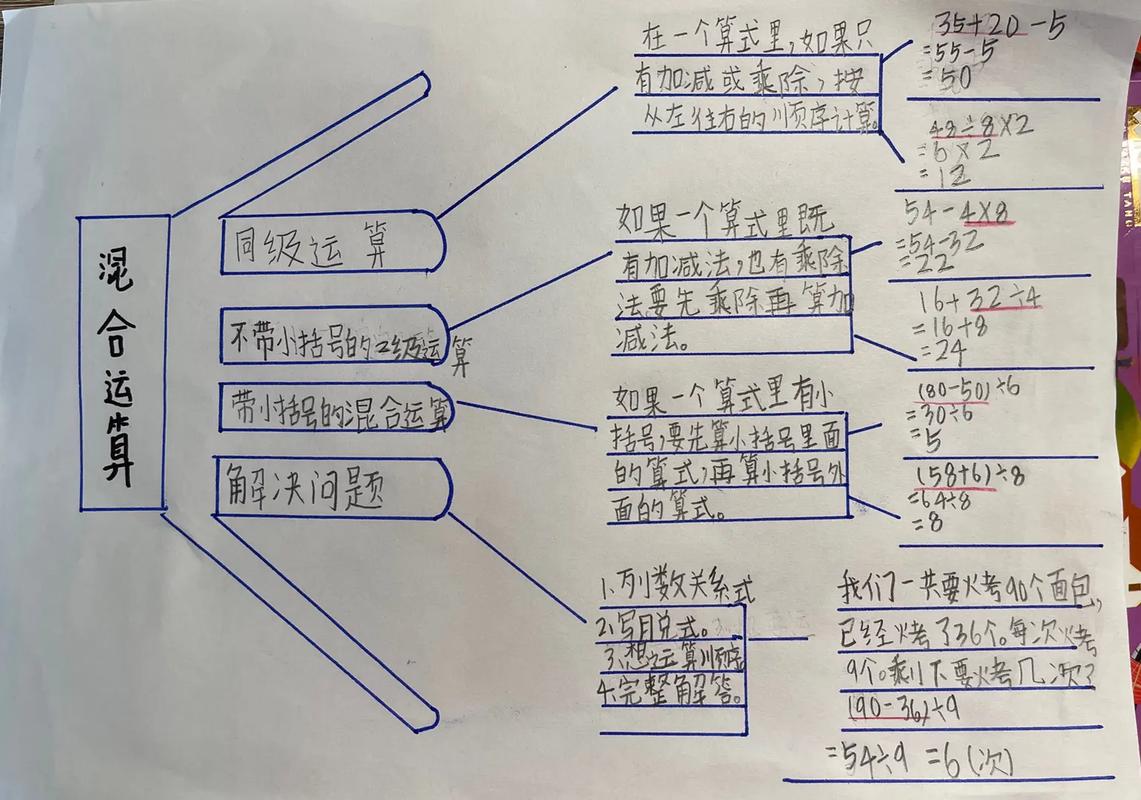 混合运算
同级运算
在一个算式里,如果只
有加减或乘除,按
从左往右的顺序计算。
35+20-5
=55-5
=50
48÷8×2
=6×2
=12
不带小括号的二级运算
如果一个算式里既
有加减法,也有乘除
法要先乘除再算加
减法。
54-4×8
=54-32
=22
16+32÷4
=16+8
=24
带小括号的混合运算
如果一个算式里有小
括号,要先算小括号里面
的算式,再算小括号外
面的算式。
(80-50)÷6
=30÷6
=5
(58+6)÷8
=64÷8
=8
解决问题
1、列数关系式
2、写月兑式。
3、想运算顺序
4、完整解答。
我们一共要烤90个面包,
已经烤了36个。每次烤
9个。剩下要烤几次?
(90-36)÷9
=54÷9 =6(次)